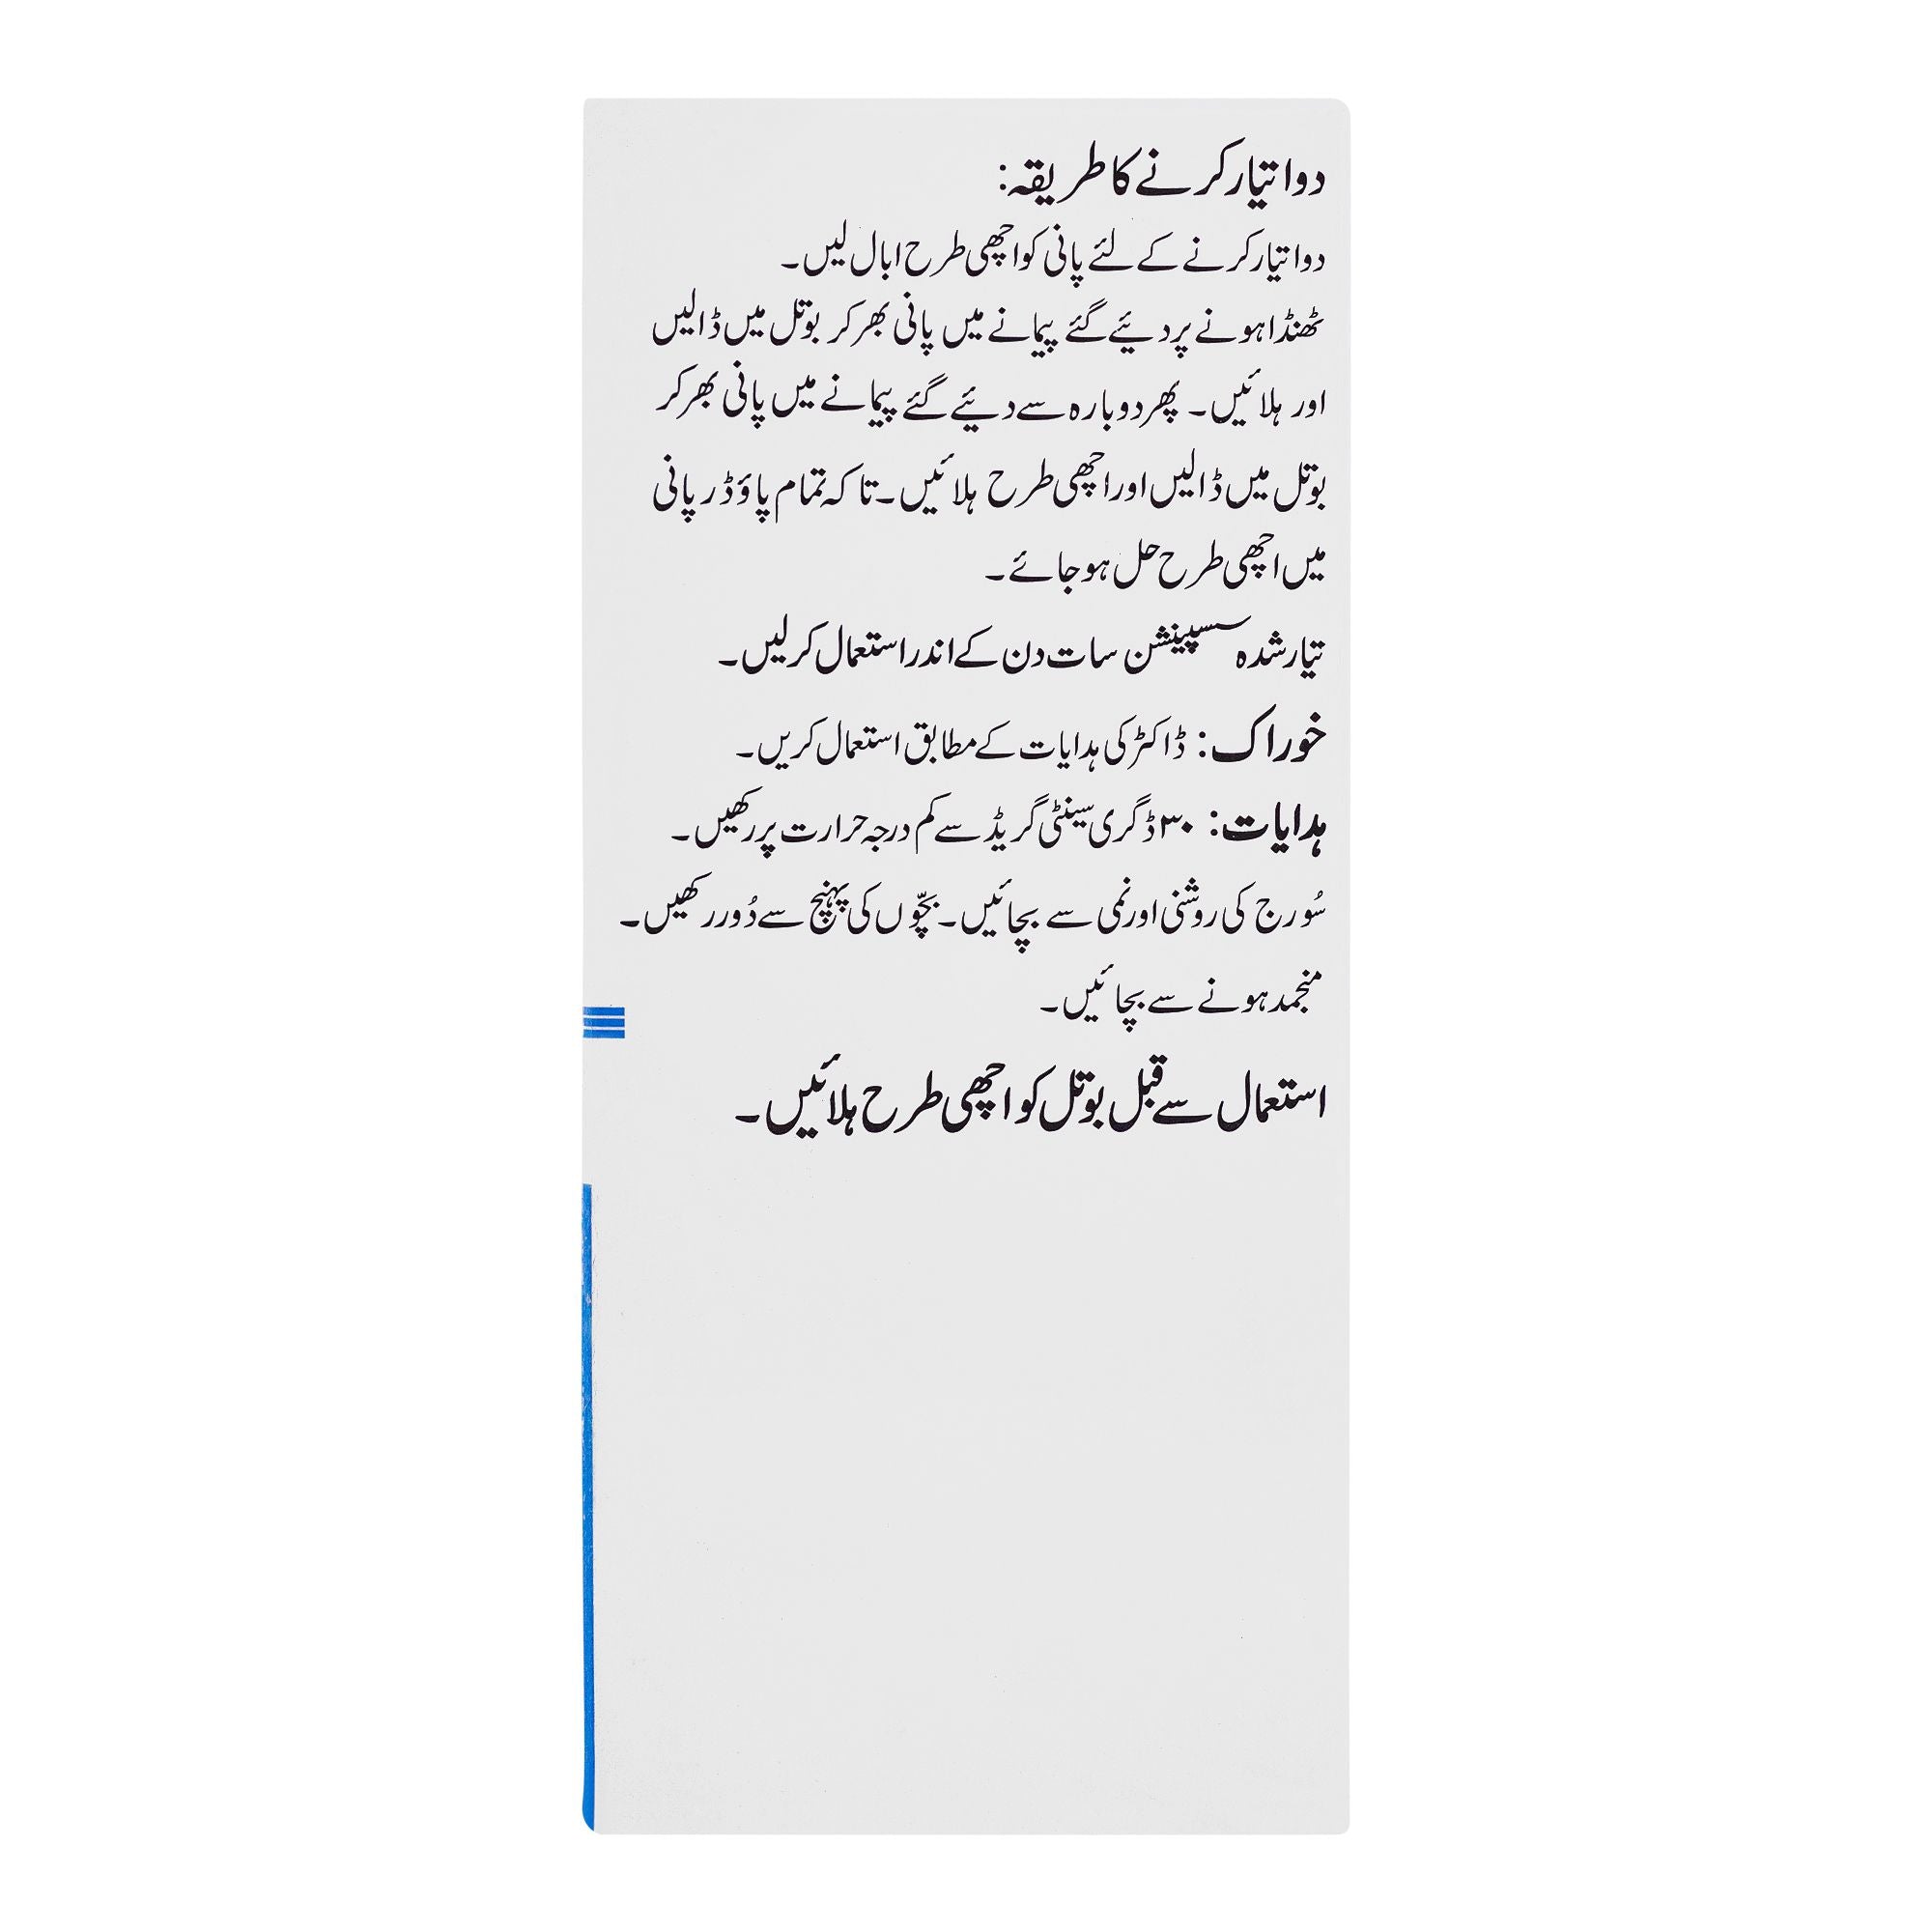 دوا تیار کرنے کا طریقہ:
دوا تیار کرنے کے لئے پانی کو اچھی طرح ابال لیں۔
ٹھنڈا ہونے پر دئیے گئے پیمانے میں پانی بھر کر بوتل میں ڈالیں
اور ہلائیں۔ پھر دوبارہ سے دئیے گئے پیمانے میں پانی بھر کر
بوتل میں ڈالیں اور اچھی طرح ہلائیں۔ تاکہ تمام پاؤڈر پانی
میں اچھی طرح حل ہو جائے۔
تیار شدہ سسپینشن سات دن کے اندر استعمال کر لیں۔
خوراک: ڈاکٹر کی ہدایات کے مطابق استعمال کریں۔
ہدایات: ۳۰ ڈگری سینٹی گریڈ سے کم درجہ حرارت پر رکھیں۔
سُورج کی روشنی اور نمی سے بچائیں۔ بچّوں کی پہنچ سے دُور رکھیں۔
منجمد ہونے سے بچائیں۔
استعمال سے قبل بوتل کو اچھی طرح ہلائیں۔